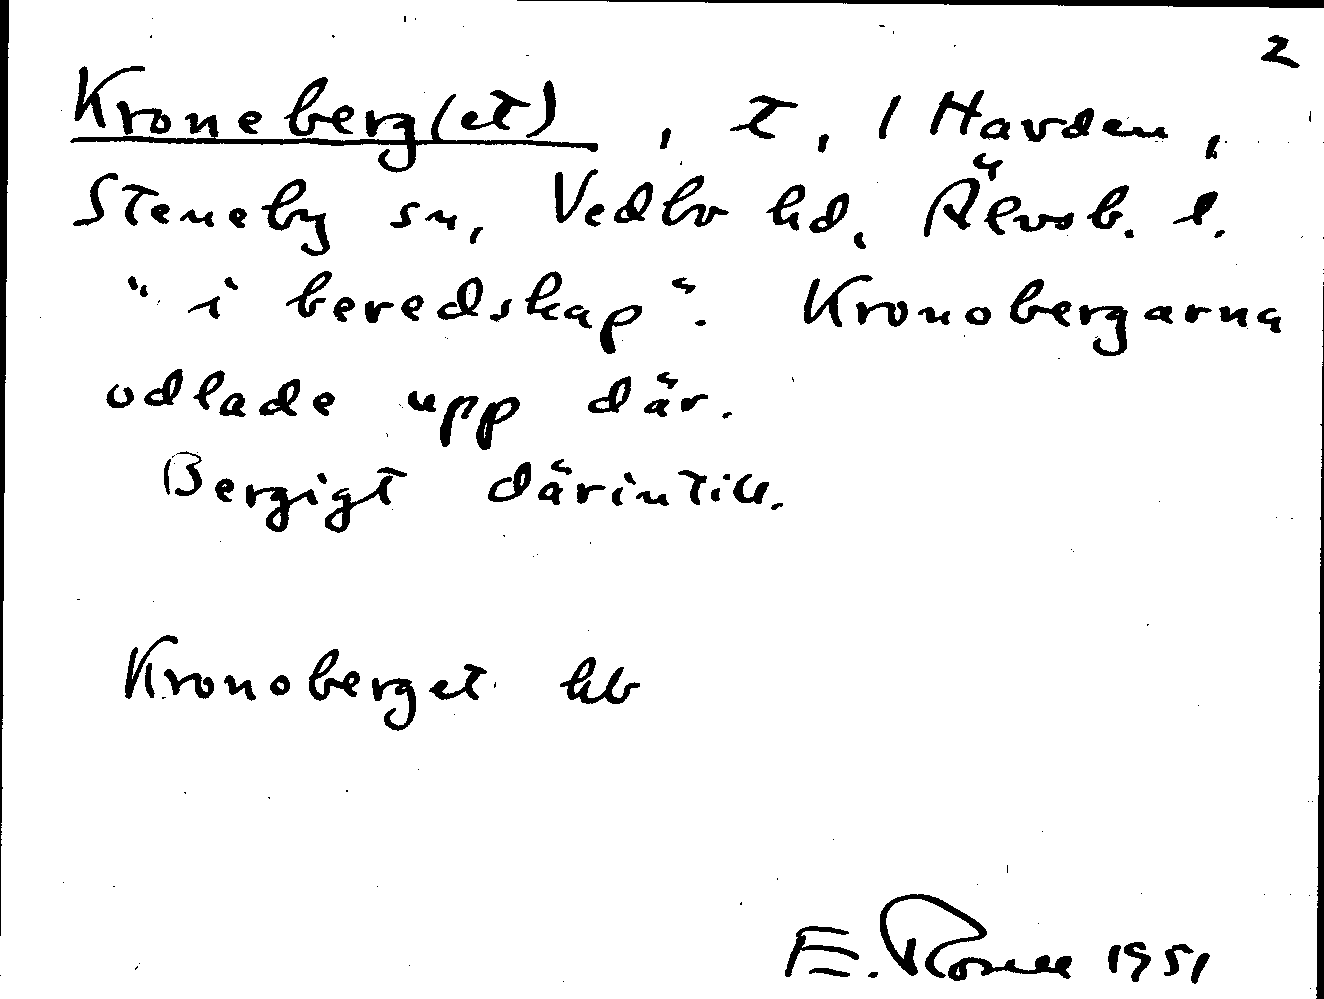 2
Kroneberg(et), t, 1 Havden,
Steneby sn, Vedbo hd, Älvsb. l.
"i beredskap". Kronobergarna
odlade upp där.
Bergigt därintill.
Kronoberget kb
E. 1951